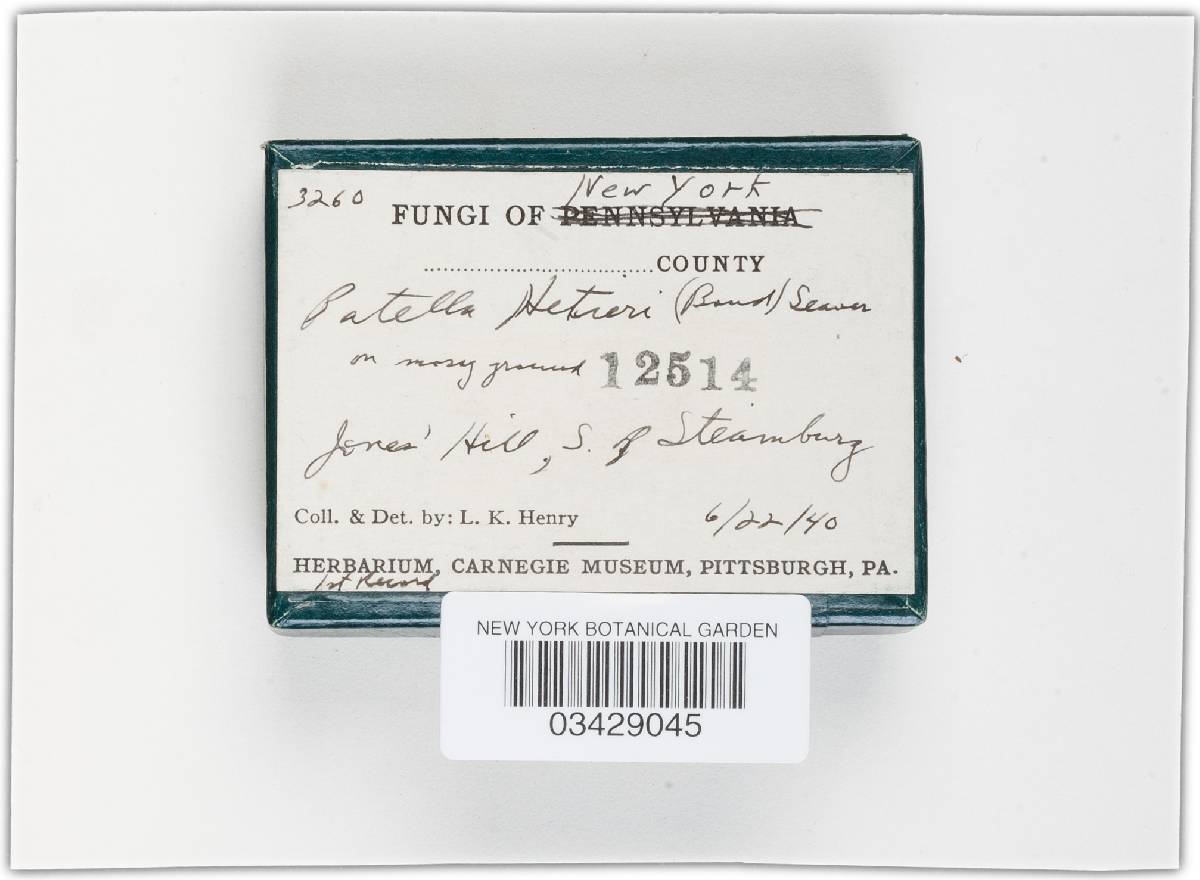 3260
New York
FUNGI OF PENNSYLVANIA
COUNTY
Patella Hetieri (Boud) Seaver
on mossy ground 12514
Jones' Hill, S. of Steamburg
Coll. & Det. by: L. K. Henry 6/22/40
HERBARIUM, CARNEGIE MUSEUM, PITTSBURGH, PA.
1st Record
NEW YORK BOTANICAL GARDEN
03429045